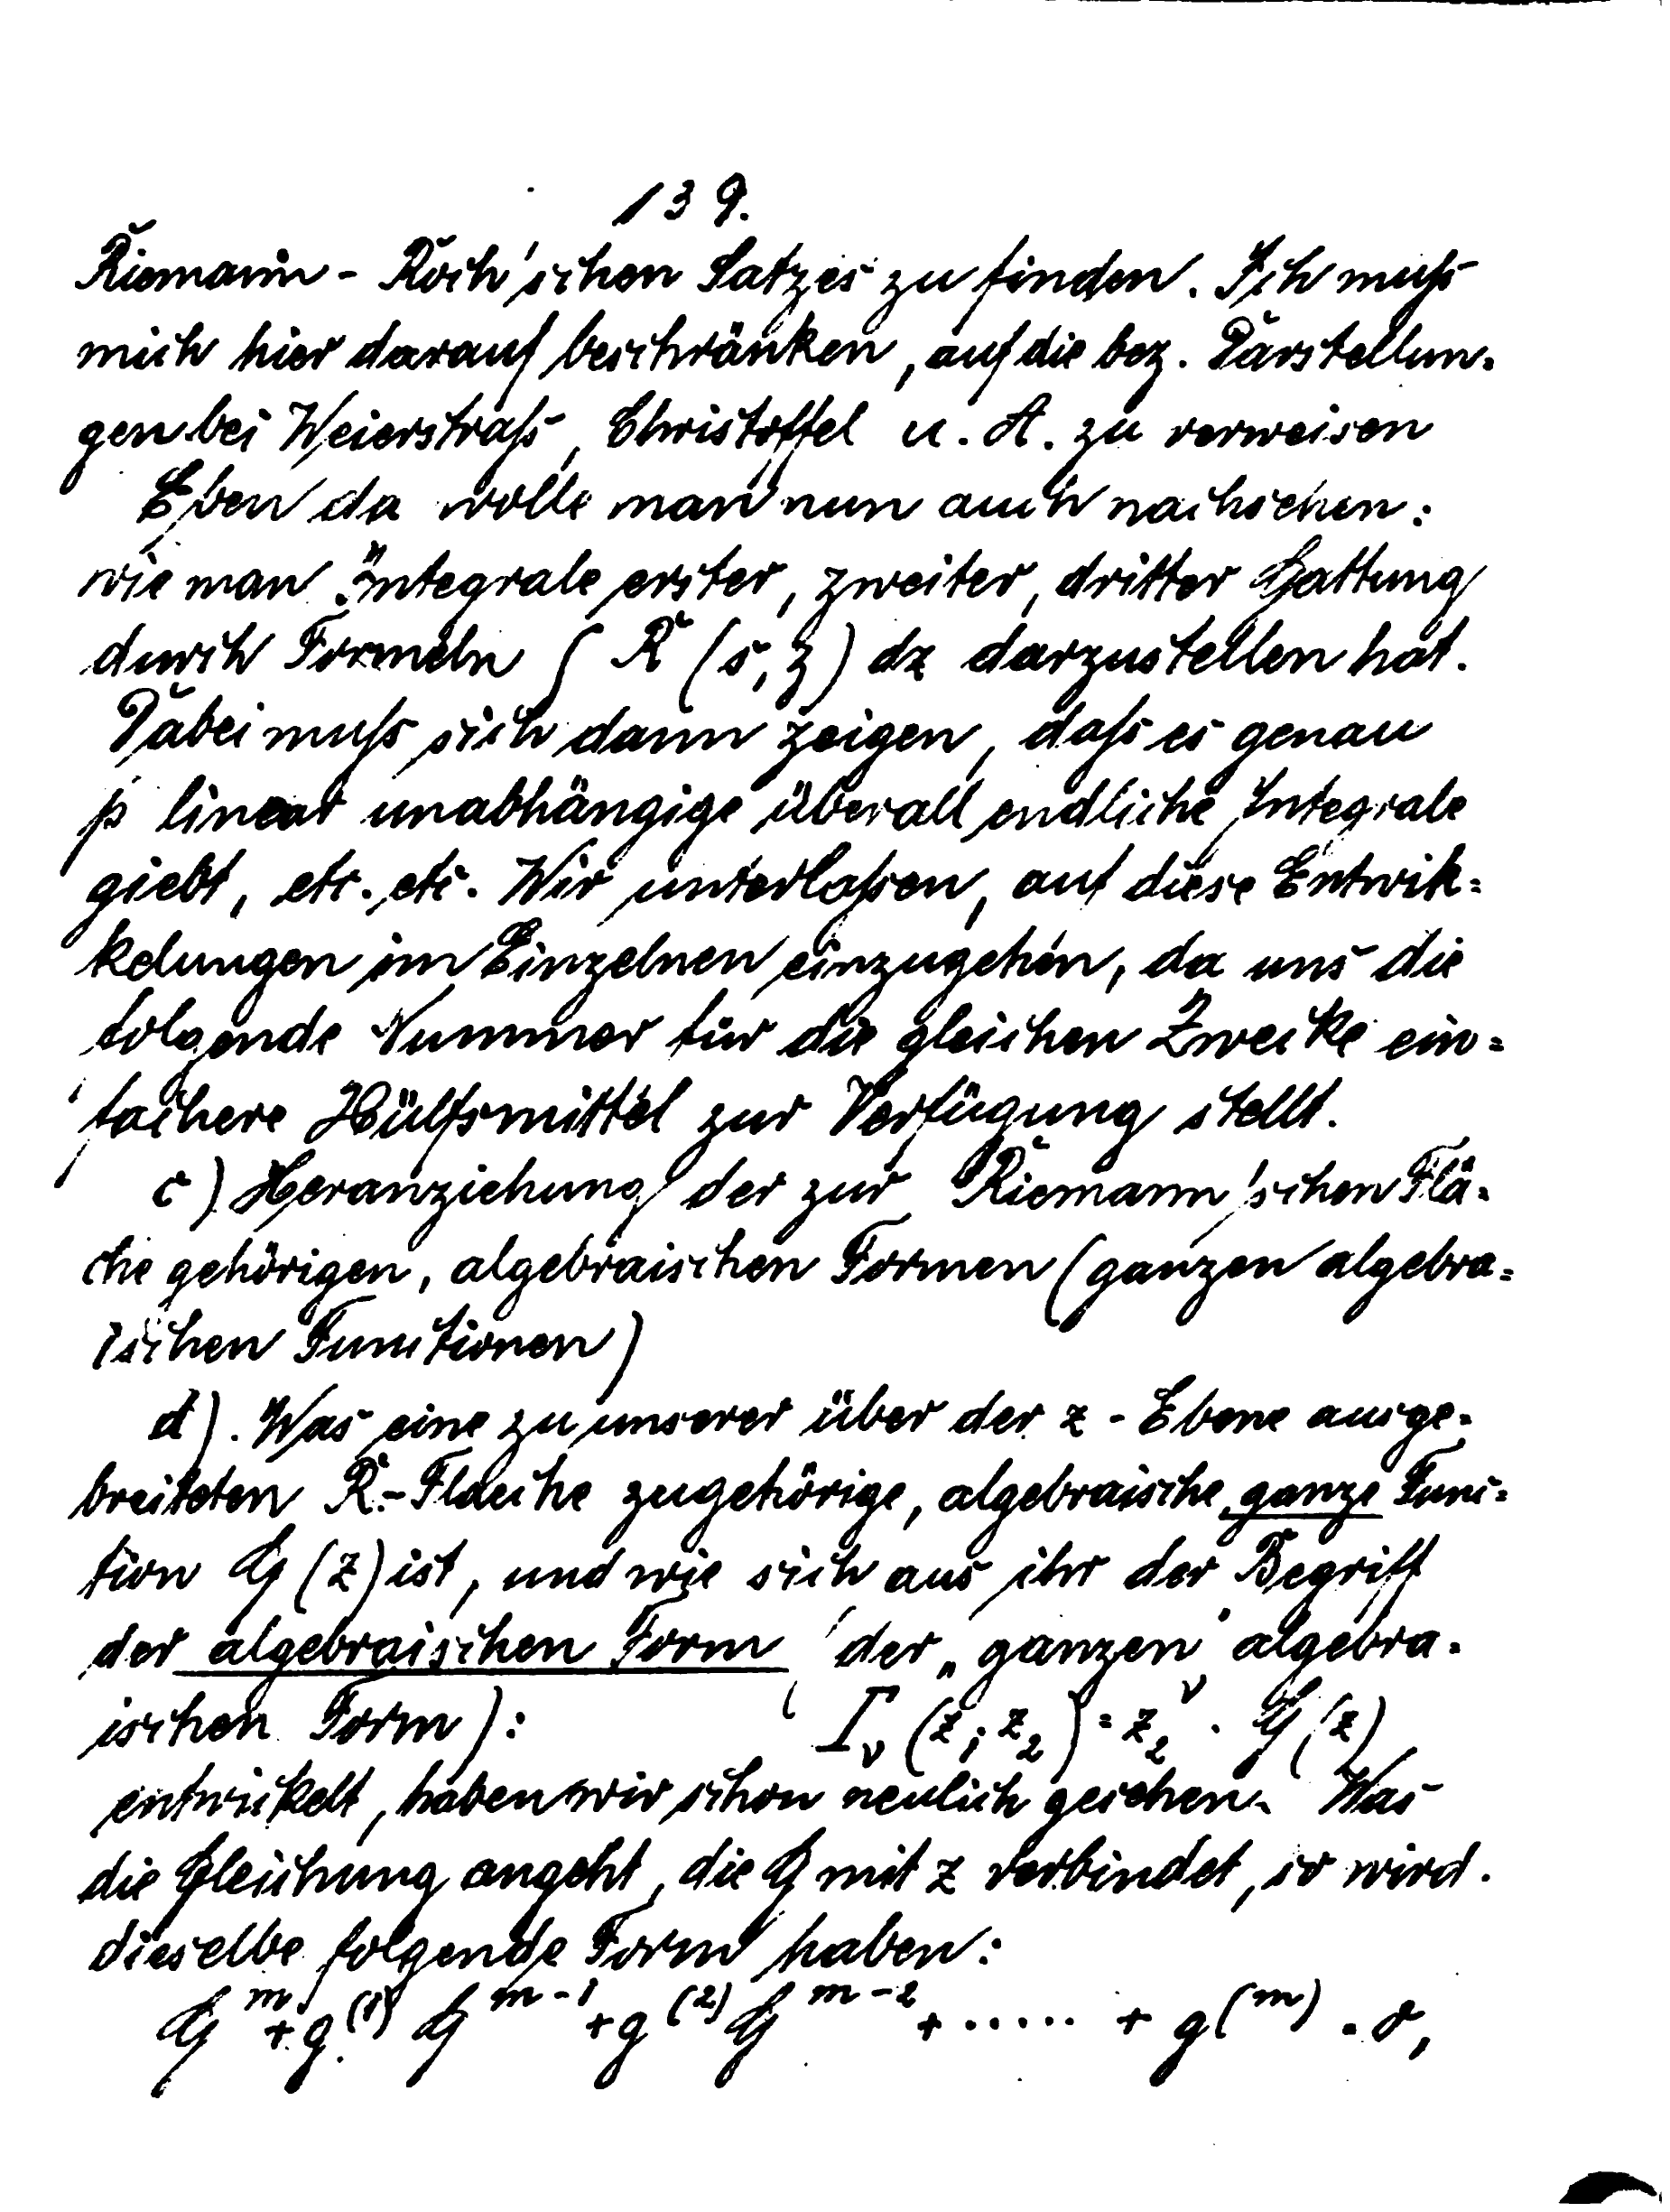 139.
Riemann-Roch'schen Satzes zu finden. Ich muß
mich hier darauf beschränken, auf die bez. Darstellun-
gen bei Weierstraß, Christoffel u. A. zu verweisen
Eben da wolle man nun auch nachsehen:
wie man Integrale erster, zweiter, dritter Gattung
durch Formeln ∫ R (s, z) dz darzustellen hat.
Dabei muß sich dann zeigen, daß es genau
p linear unabhängige überall endliche Integrale
giebt, etc. etc. Wir unterlaßen, auf diese Entwik=
kelungen im Einzelnen einzugehen, da uns die
folgende Nummer für die gleichen Zwecke ein=
fachere Hülfsmittel zur Verfügung stellt.
c) Heranziehung der zur Riemann'schen Flä-
che gehörigen, algebraischen Formen (ganzen algebra=
ischen Functionen)
d). Was eine zu unserer über der z-Ebene ausge-
breiteten R.-Flaeche zugehörige, algebraische ganze Func=
tion G (z) ist, und wie sich aus ihr der Begriff
der algebraischen Form (der „ganzen" algebra-
ischen Form): Γ_ν (z_1 z_2) = z_2^ν . G (z)
entwickelt, haben wir schon neulich gesehen. Was
die Gleichung angeht, die G mit z verbindet, so wird.
dieselbe folgende Form haben:
G^m + g^(1) G^{m-1} + g^(2) G^{m-2} + ..... + g^(m) = 0,